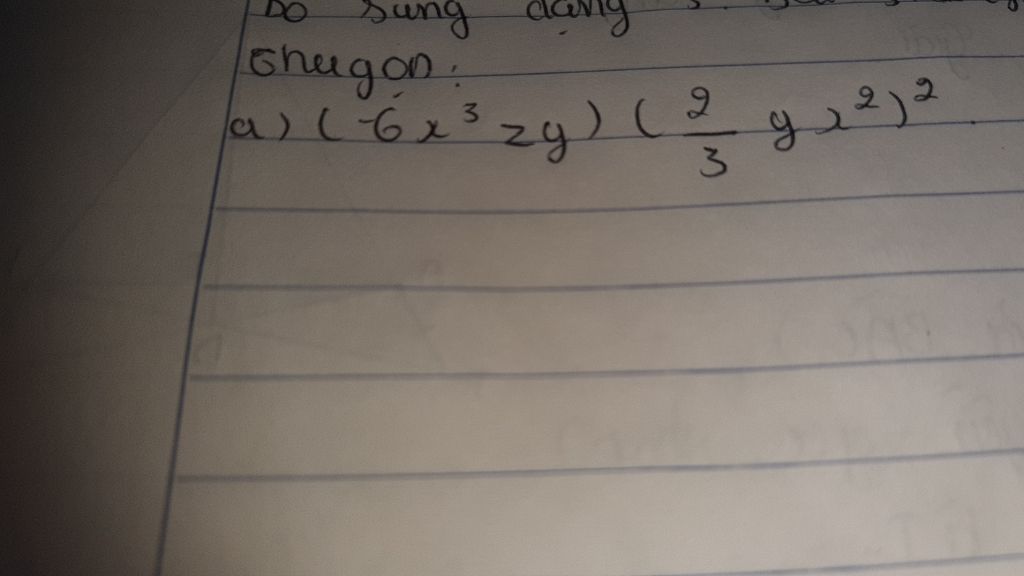 bổ sung dạng
thu gọn:
a) (-6x³zy) (2/3 yx²)².